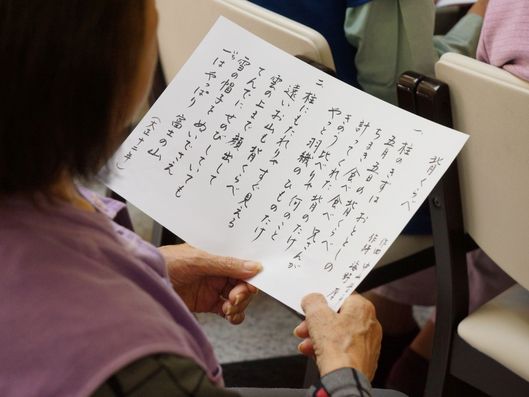 背くらべ
作詞 海野 厚
作曲 中
一
柱のきずは おととしの
五月五日の 背くらべ
ちまき食べ食べ 兄さんが
計ってくれた 背のたけ
きのう比べりゃ 何のこと
やっと羽織の ひものたけ
二
柱にもたれりゃ すぐ見える
遠いお山も 背くらべ
雲の上まで 顔出して
てんでにせのび していても
雪の帽子を ぬいでさえ
一ばんはやっぱり 富士の山
(大正十二年)